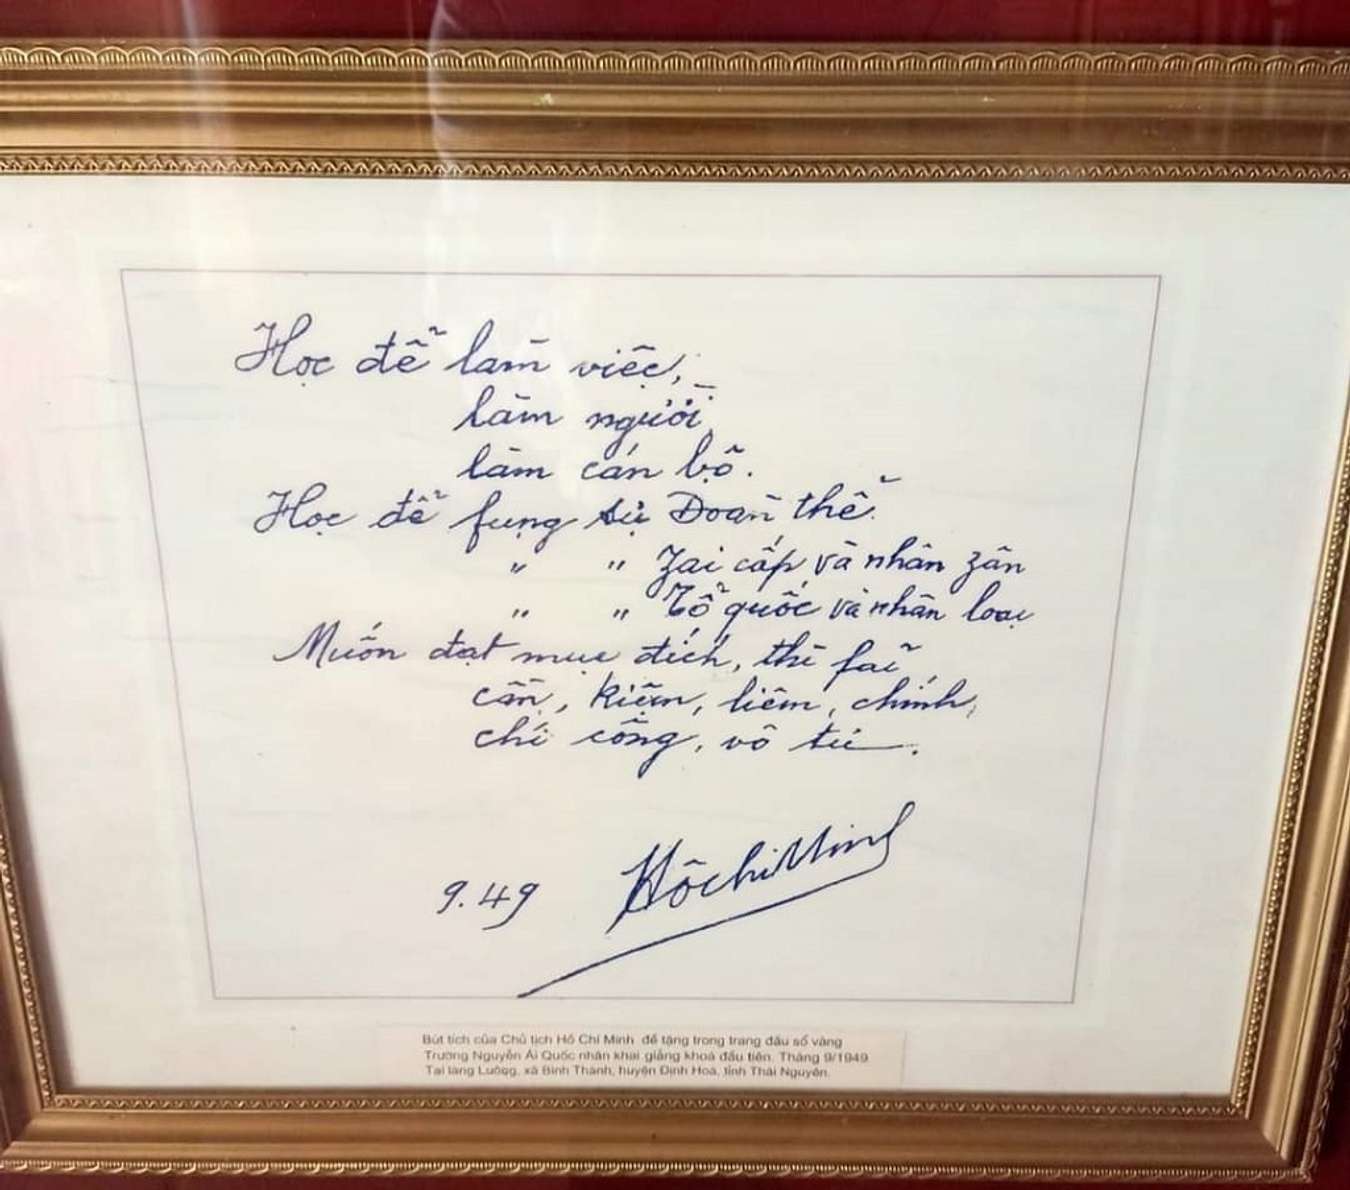 Học để làm việc,
làm người,
làm cán bộ.
Học để fụng sự Đoàn thể.
" " Zai cấp và nhân zân
" " Tổ quốc và nhân loại
Muốn đạt mục đích, thì fải
cần, kiệm, liêm, chính,
chí công, vô tư.
9.49 Hồ Chí Minh
Bút tích của Chủ tịch Hồ Chí Minh đề tặng trong trang đầu sổ vàng
Trường Nguyễn Ái Quốc nhân khai giảng khoá đầu tiên. Tháng 9/1949
Tại làng Luông, xã Bình Thành, huyện Định Hoá, tỉnh Thái Nguyên.